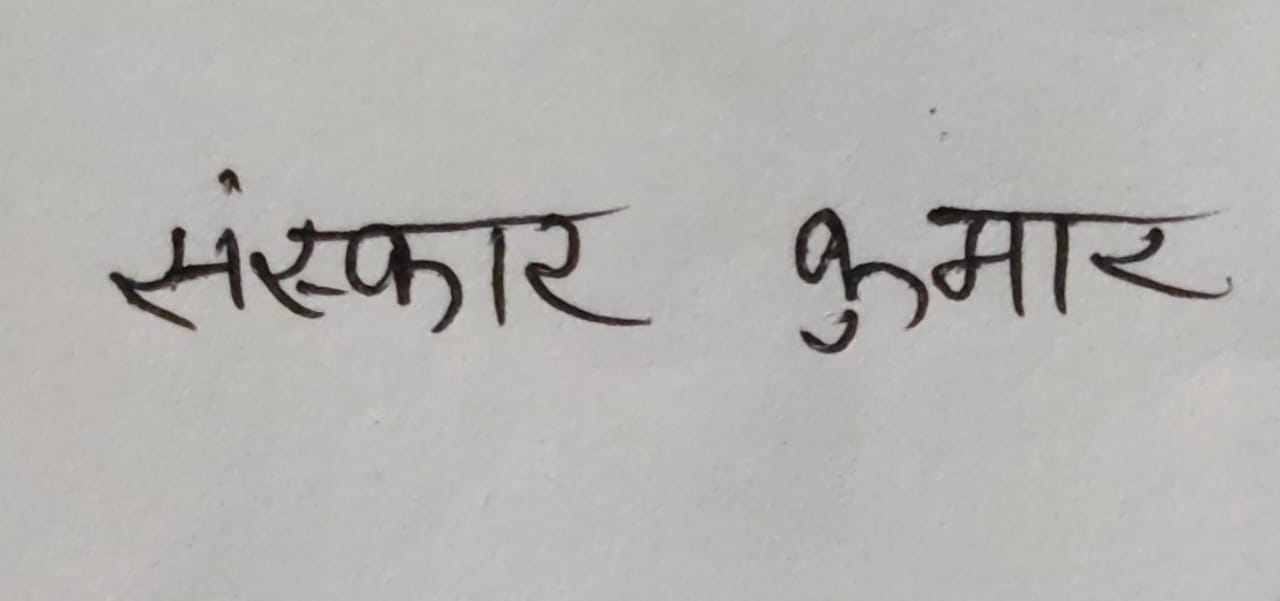 संस्कार कुमार